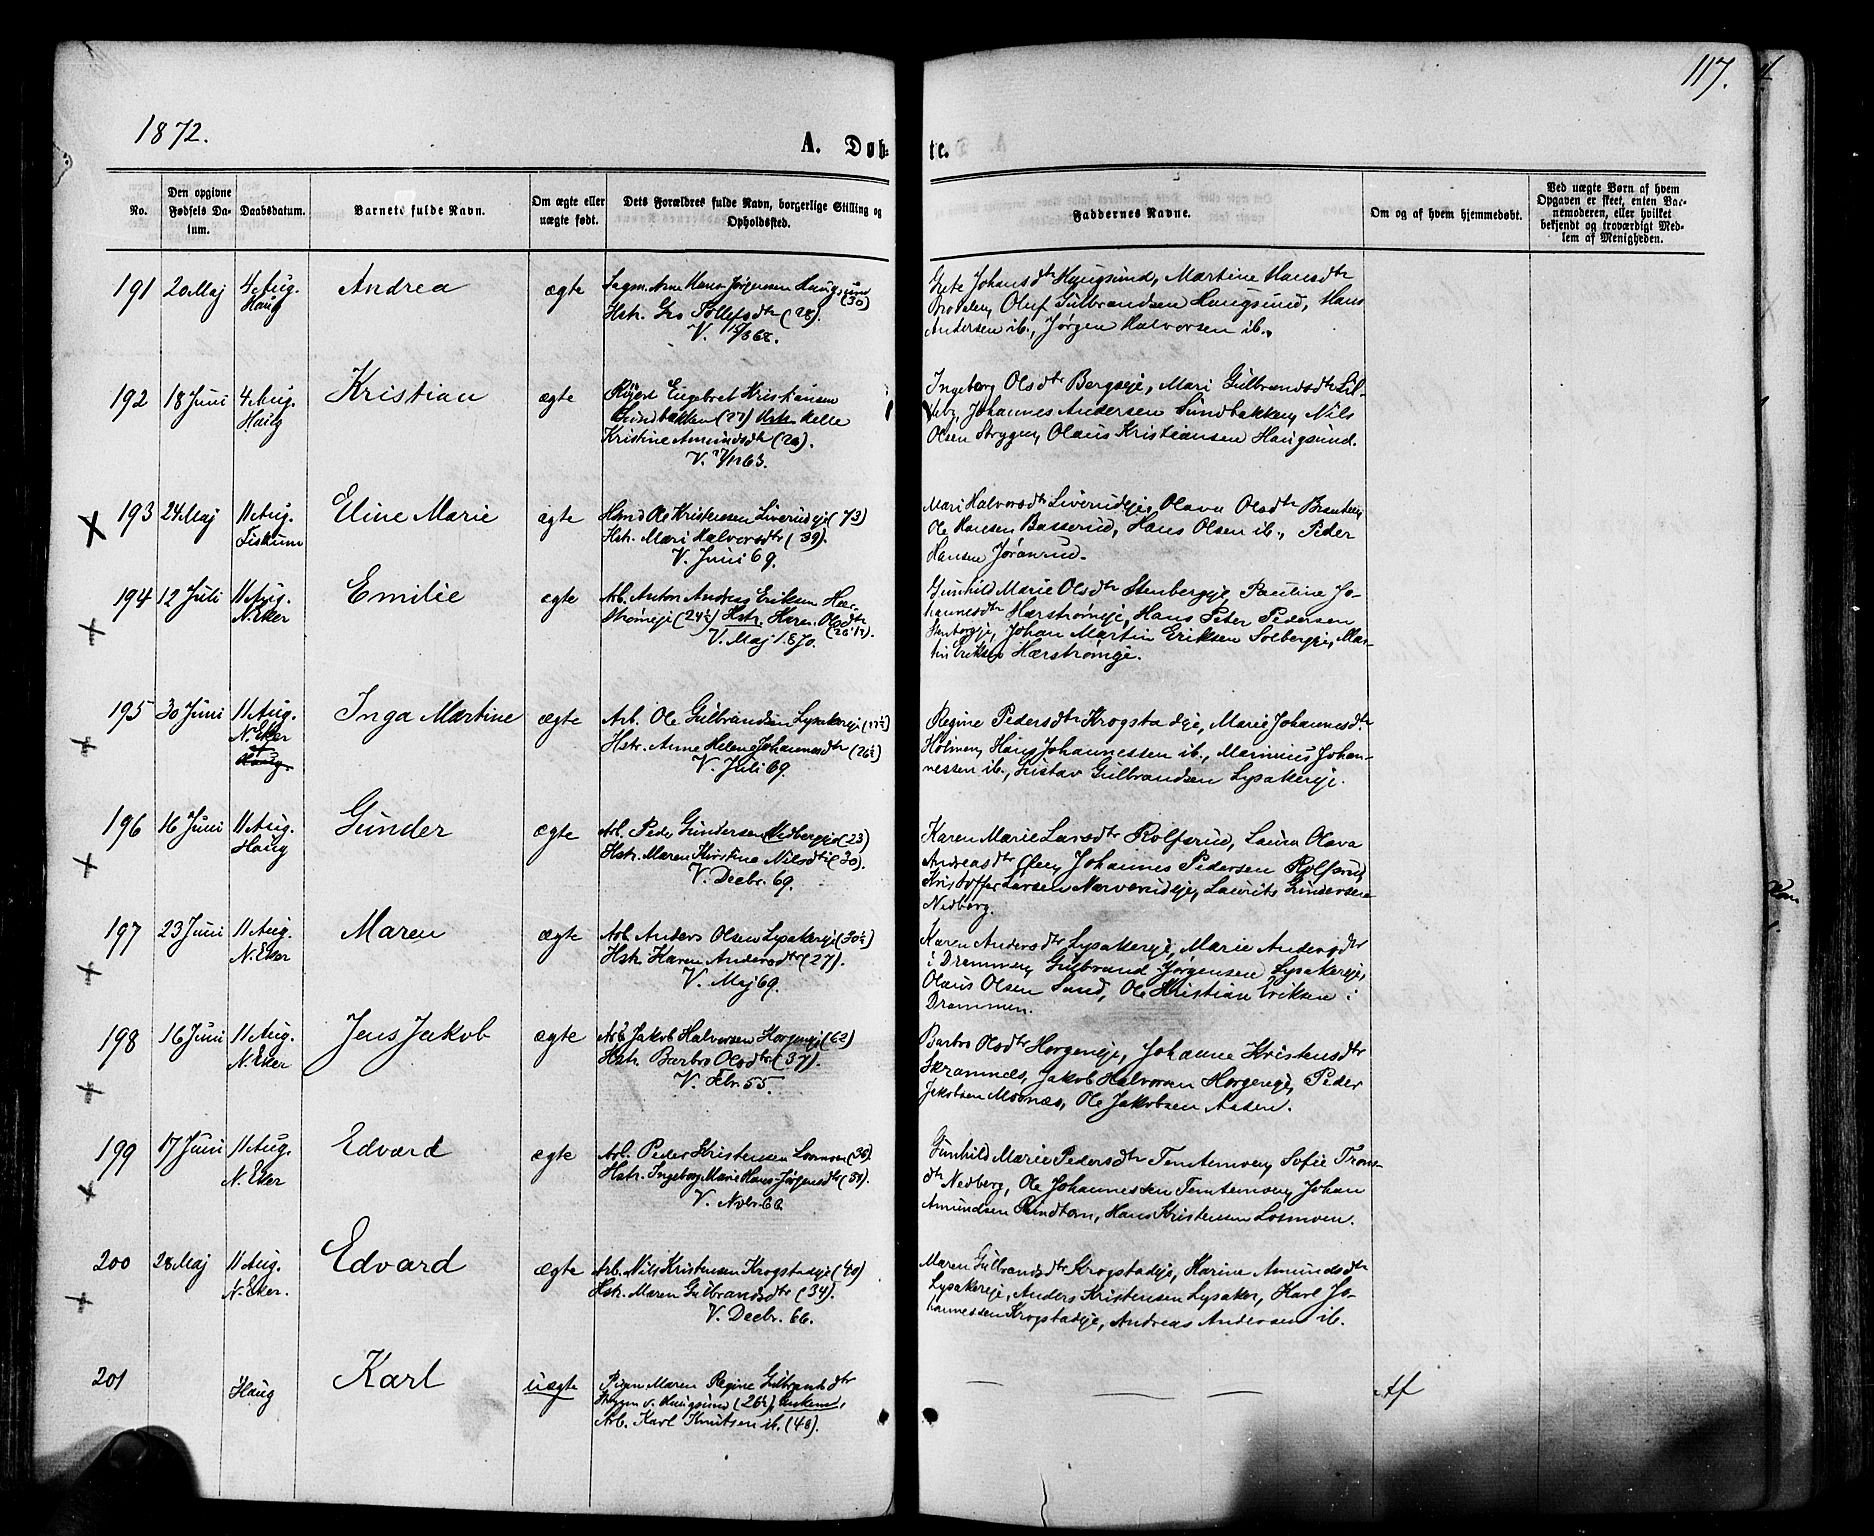 1872.
117.
A. Døb-
te.
No.
Den opgivne
Fødsels Da-
tum.
Daabsdatum.
Barnets fulde Navn.
Om ægte eller
uægte født.
Dets Forældres fulde Navn, borgerlige Stilling og
Opholdssted.
Faddernes Navne.
Om og af hvem hjemmedøbt.
Ved uægte Børn af hvem
Opgaven er skeet, enten Bar-
nemoderen, eller hvilket
bekjendt og troværdigt Med-
lem af Menigheden.
191 20 Maj 4 Aug. Andrea ægte
Haug
Hans Jørgensen Haugsund (30)
Hstr. Gro Tollefsdtr (28).
V.
Grete Johansdtr Haugsund, Martine Hansdtr
Oluf Gulbrandsen Haugsund, Hans
Andersen ib., Jørgen Halvorsen ib.
192 18 Juni 4 Aug. Kristian ægte
Haug
Engebret Kristiansen
Sundbakken (27) Helle
Kristine Amundsdtr
V.
Ingeborg Olsdtr Bergseje, Mari Gulbrandsdtr Lil-
leby, Johannes Andersen Sundbakken, Nils
Olsen Strygen, Olaus Kristiansen Haugsund.
193 24 Maj 11 Aug. Eline Marie ægte
Fiskum
Hsmd Ole Kristensen Liverudeje (73)
Hstr. Mari Halvorsdtr (39).
V. Juni 69.
Mari Halvorsdtr Liverudeje, Olava Olsdtr
Ole Hansen Basserud, Hans Olsen ib., Peder
Hansen Jøranrud.
194 12 Juli 11 Aug. Emilie ægte
N. Eker
Arb. Anton Andreas Eriksen Hær-
strømeje (24½) Hstr. Karen Olsdtr
V. Maj 1870.
Gunhild Marie Olsdtr Stenbergeje, Pauline Jo-
hannesdtr Hærstrømeje, Hans Peter Pedersen
Stenbergeje, Johan Martin Eriksen Solbergeje, Mar-
tin Eriksen Hærstrømeje.
195 30 Juni 11 Aug. Inga Martine ægte
N. Eker
Haug.
Arb. Ole Gulbrandsen Lysakereje
Hstr. Anne Helene Johannesdtr (26½)
V. Juli 69.
Regine Pedersdtr Krogstadeje, Marie Johannesdtr
Holmen, Hans Johannessen ib., Marinius Johan-
nessen ib., Gustav Gulbrandsen Lysakereje.
196 16 Juni 11 Aug. Gunder ægte
Haug
Arb. Peder Gundersen Nedbergeje (23)
Hstr. Maren Kirstine Nilsdtr (30).
V. Decbr. 69.
Karen Marie Larsdtr Rolfsrud, Laura Olava
Andreasdtr Johannes Pedersen Rolfsrud
Kristoffer Larsen Narverudeje, Laurits Gundersen
Nedberg.
197 23 Juni 11 Aug. Maren ægte
N. Eker
Arb. Anders Olsen Lysakereje (30½)
Hstr. Karen Andersdtr (27).
V. Maj 69.
Karen Andersdtr Lysakereje, Marie Andersdtr
i Drammen, Gulbrand Jørgensen Lysakereje,
Olaus Olsen Sand, Ole Kristian Eriksen i
Drammen.
198 16 Juni 11 Aug. Jens Jakob ægte
N. Eker
Arb. Jakob Halvorsen Horgeneje (62)
Hstr. Barbro Olsdtr (37).
V. Febr. 55.
Barbro Olsdtr Horgeneje, Johanne Kristensdtr
Skramnes, Jakob Halvorsen Horgeneje, Peder
Jakobsen Moenæs, Ole Jakobsen Aasen.
199 17 Juni 11 Aug. Edvard ægte
N. Eker
Arb. Peder Kristensen Losmoen (36)
Hstr. Ingeborg Marie Hans-Jørgensdtr
V. Novbr. 66.
Gunhild Marie Pedersdtr Temtemoen, Sofie Trons-
dtr Nedberg, Ole Johannessen Temtemoen, Johan
Amundsen Rundtom, Hans Kristensen Losmoen.
200 28 Maj 11 Aug. Edvard ægte
N. Eker.
Arb. Nils Kristensen Krogstadeje (40)
Hstr. Maren Gulbrandsdtr (34).
V. Decbr. 66.
Maren Gulbrandsdtr Krogstadeje, Karine Amundsdtr
Lysakereje, Anders Kristensen Lysaker, Karl Jo-
hannessen Krogstadeje, Andreas Andersen ib.
201 Karl uægte
Haug
Pigen Maren Regine Gulbrandsdtr
v. Haugsund (26½),
Arb. Karl Knutsen ib. (48)
Af